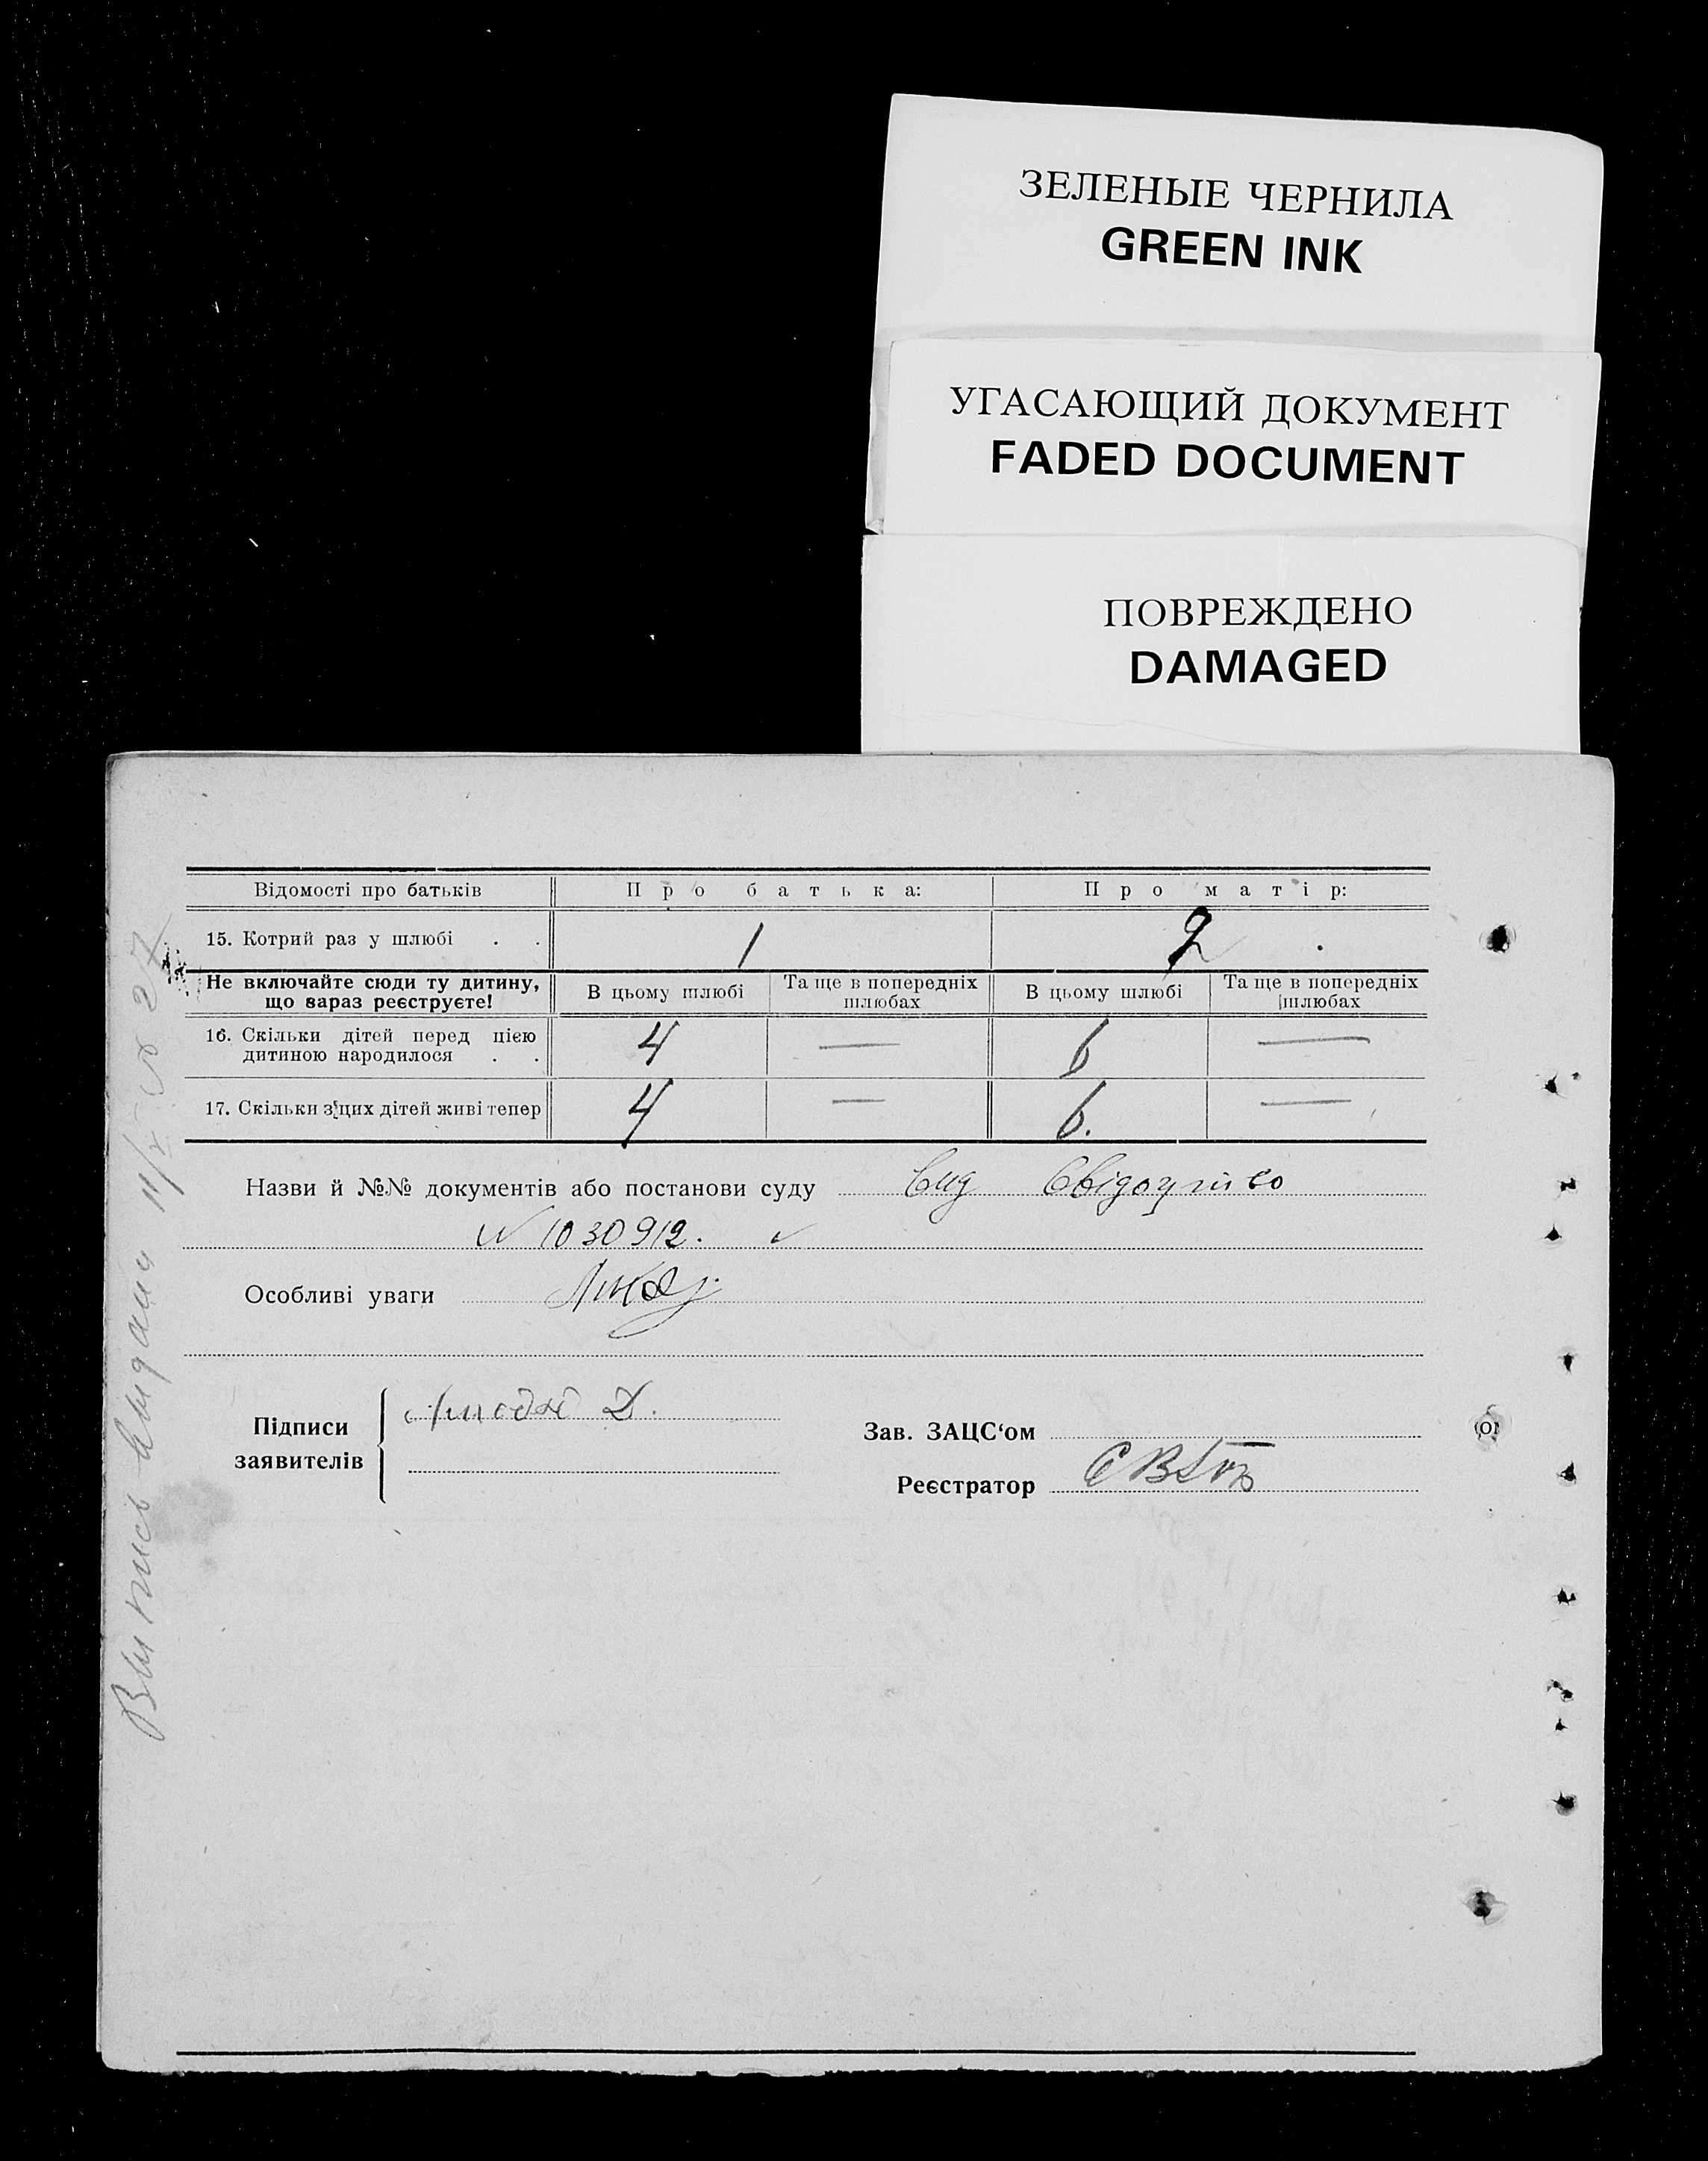 ЗЕЛЕНЫЕ ЧЕРНИЛА
GREEN INK
УГАСАЮЩИЙ ДОКУМЕНТ
FADED DOCUMENT
ПОВРЕЖДЕНО
DAMAGED
Відомості про батьків Про батька: Про матір:
15. Котрий раз у шлюбі . . 1 2
Не включайте сюди ту дитину, що зараз реєструєте! В цьому шлюбі Та ще в попередніх шлюбах В цьому шлюбі Та ще в попередніх шлюбах
16. Скільки дітей перед цією
дитиною народилося . . 4 — 6 —
17. Скільки з цих дітей живі тепер 4 — 6. —
Назви й №№ документів або постанови суду
N 1030912.
Особливі уваги
Підписи
заявителів Д.
Зав. ЗАЦС‘ом
Реєстратор
Выпись 27